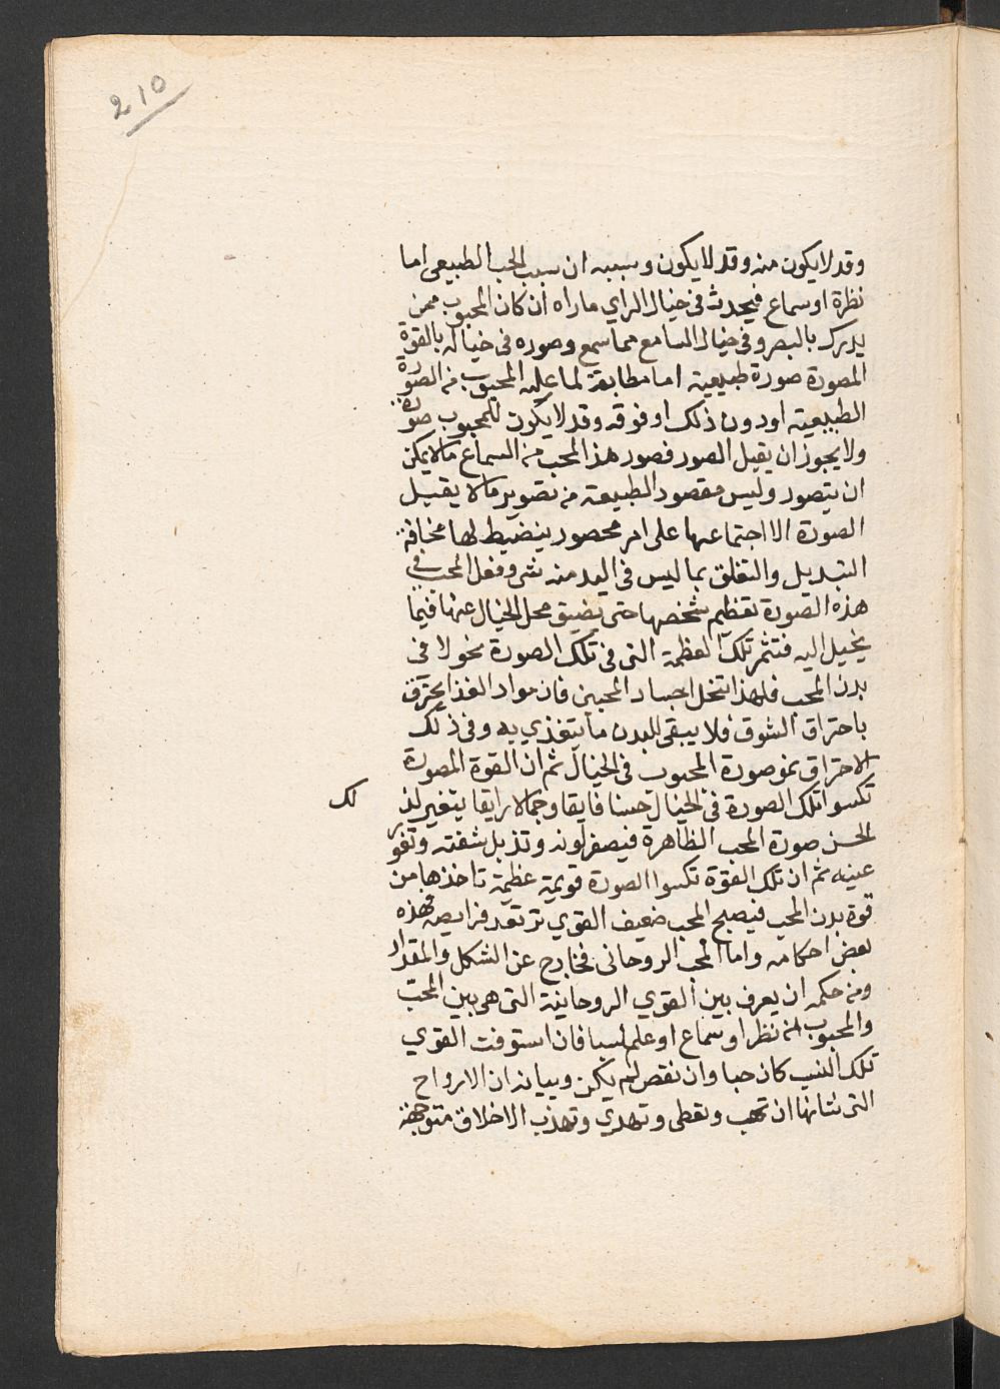 210
وقد لا يكون منه وقد لا يكون وسببه ان سبب الحب الطبيعى اما
نظرة او سماع فيحدث فى خيال الراي ما راه ان كان المحبوب ممن
يدرك بالبصر وفى خيال السامع مما سمع وصوره فى خياله بالقوة
المصورة صورة طبيعية اما مطابقة لما عليه المحبوب من الصورة
الطبيعية او دون ذلك او فوقه وقد لا يكون للمحبوب صورة
ولا يجوز ان يقبل الصور فصور هذا المحب من السماع ما لا يمكن
ان يتصور وليس مقصود الطبيعة من تصوير ما لا يقبل
الصورة الا اجتماعها على امر محصور ينضبط لها مخافة
التبديل والتعلق بما ليس فى اليد منه شى وفعل المحب فى
هذه الصورة تعظيم شخصها حتى يضيق محل الخيال عنها فيما
يخيل اليه فتثمر تلك العظمة التى فى تلك الصورة نحولا فى
بدن المحب فلهذا تنحل اجساد المحبين فان مواد الغذا يحترق
باحتراق الشوق فلا يبقى للبدن ما يتغذي به وفى ذلك
الاحتراق نمو صورة المحبوب فى الخيال ثم ان القوة المصورة
تكسوا تلك الصورة فى الخيال حسنا فايقا وجمالا رايقا يتغير لذ لك
الحسن صورة المحب الظاهرة فيصفر لونه وتذبل شفته وتغور
عينه ثم ان تلك القوة تكسوا الصورة قوية عظيمة تاخذها من
قوة بدن المحب فيصبح المحب ضعيف القوي ترتعد فرايصه فهذه
بعض احكامه واما الحب الروحانى فخارج عن الشكل والمقدار
ومن حكمه ان يعرف بين القوي الروحانية التى هى بين المحب
والمحبوب من نظر او سماع او علم نسبا فان استوفت القوي
تلك النسب كان حبا وان نقص لم يكن وبيانه ان الارواح
التى شانها ان تهب وتعطى وتهدي وتهذب الاخلاق متوجهة